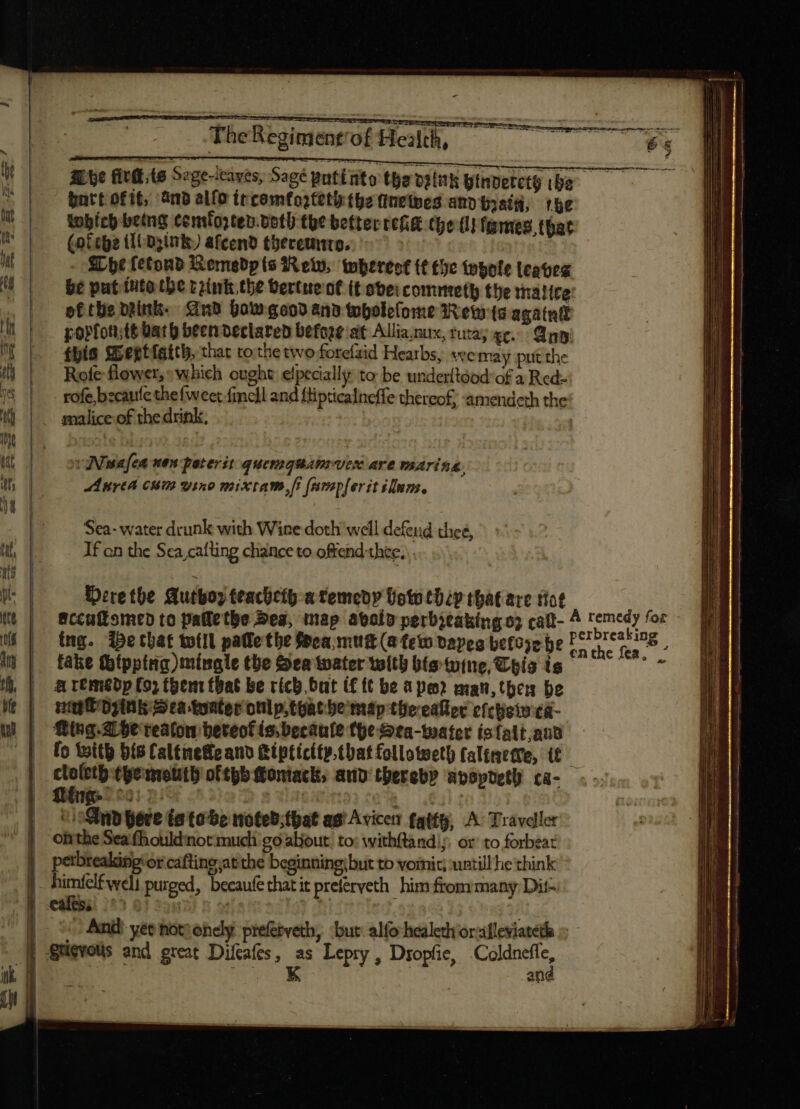 The Regiment of Health, 65
The first is Sage-leaves, Sage put into the drink hindereth the
hurt of it, and also it comforteth the sinewes and brain, the
which being comforted doth the better resist the ill fumes, that
(of the ill drink) ascend thereunto.
The second Remedy is Rew, whereof if the whole leaves
be put into the drink, the vertue of it overcommeth the malice
of the drink. And how good and wholesome Rew is against
poyson, it hath been declared before at Allia, nux, ruta, &c. And
this Text saith, that to the two foresaid Hearbs, we may put the
Rose flower, which ought especially to be understood of a Red-
rose, because the sweet smell and stipticalnesse thereof, amendeth the
malice of the drink.
Nausea non poterit quemquam vexare marina,
Aurea cum vino mixtam, si sumpserit illam.
Sea-water drunk with Wine doth well defend thee,
If on the Sea, casting chance to offend thee.
Here the Author teacheth a remedy how they that are not
accustomed to passe the Sea, may avoid perbreaking or cast-
ing. He that will passe the Sea, must (a few dayes before he
take shipping) mingle the Sea water with his wine, This is
a remedy for them that be rich, but if it be a poor man, then he
must drink Sea-water only, that he may thereafter eschew ca-
sting. The reason hereof is, because the Sea-water is salt, and
so with his saltnesse and stipticity, that followeth saltnesse, it
closeth the mouth of the stomack, and thereby avoydeth ca-
sting.
And here is to be noted, that as Avicen saith, A Traveller
on the Sea should not much go about, to withstand, or to forbear
perbreaking or casting, at the beginning, but to vomit, untill he think
himself well purged, because that it preserveth him from many Dis-
eases.
And yet not onely preserveth, but also healeth or alleviateth
grievous and great Diseases, as Lepry, Dropsie, Coldnesse,
K and
A remedy for
perbreaking
on the sea.